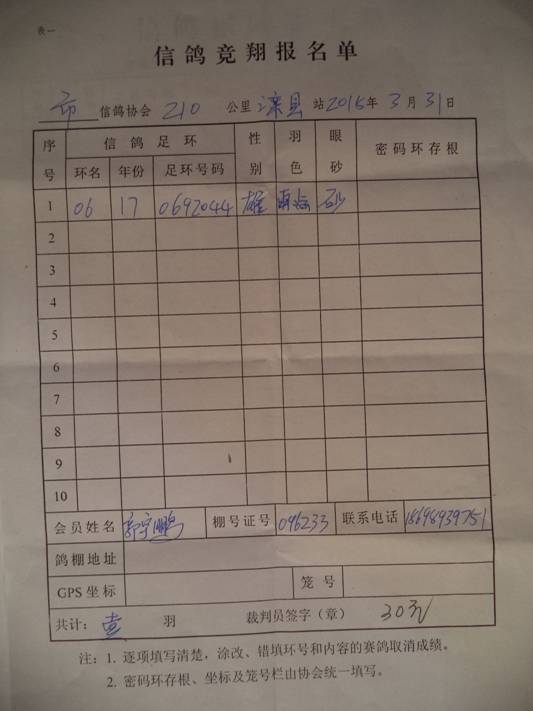 表一
信鸽竞翔报名单
市 信鸽协会 210 公里 滦县 站 2015年 3月 31日
序号 信鸽足环 性别 羽色 眼砂 密码环存根
环名 年份 足环号码
1 06 17 0692044 雄 雨点 砂
2
3
4
5
6
7
8
9
10
会员姓名 郭宇鹏 棚号证号 096233 联系电话 18698939751
鸽棚地址
GPS坐标 笼号
共计: 壹 羽 裁判员签字(章) 30元
注: 1. 逐项填写清楚，涂改、错填环号和内容的赛鸽取消成绩。
2. 密码环存根、坐标及笼号栏由协会统一填写。